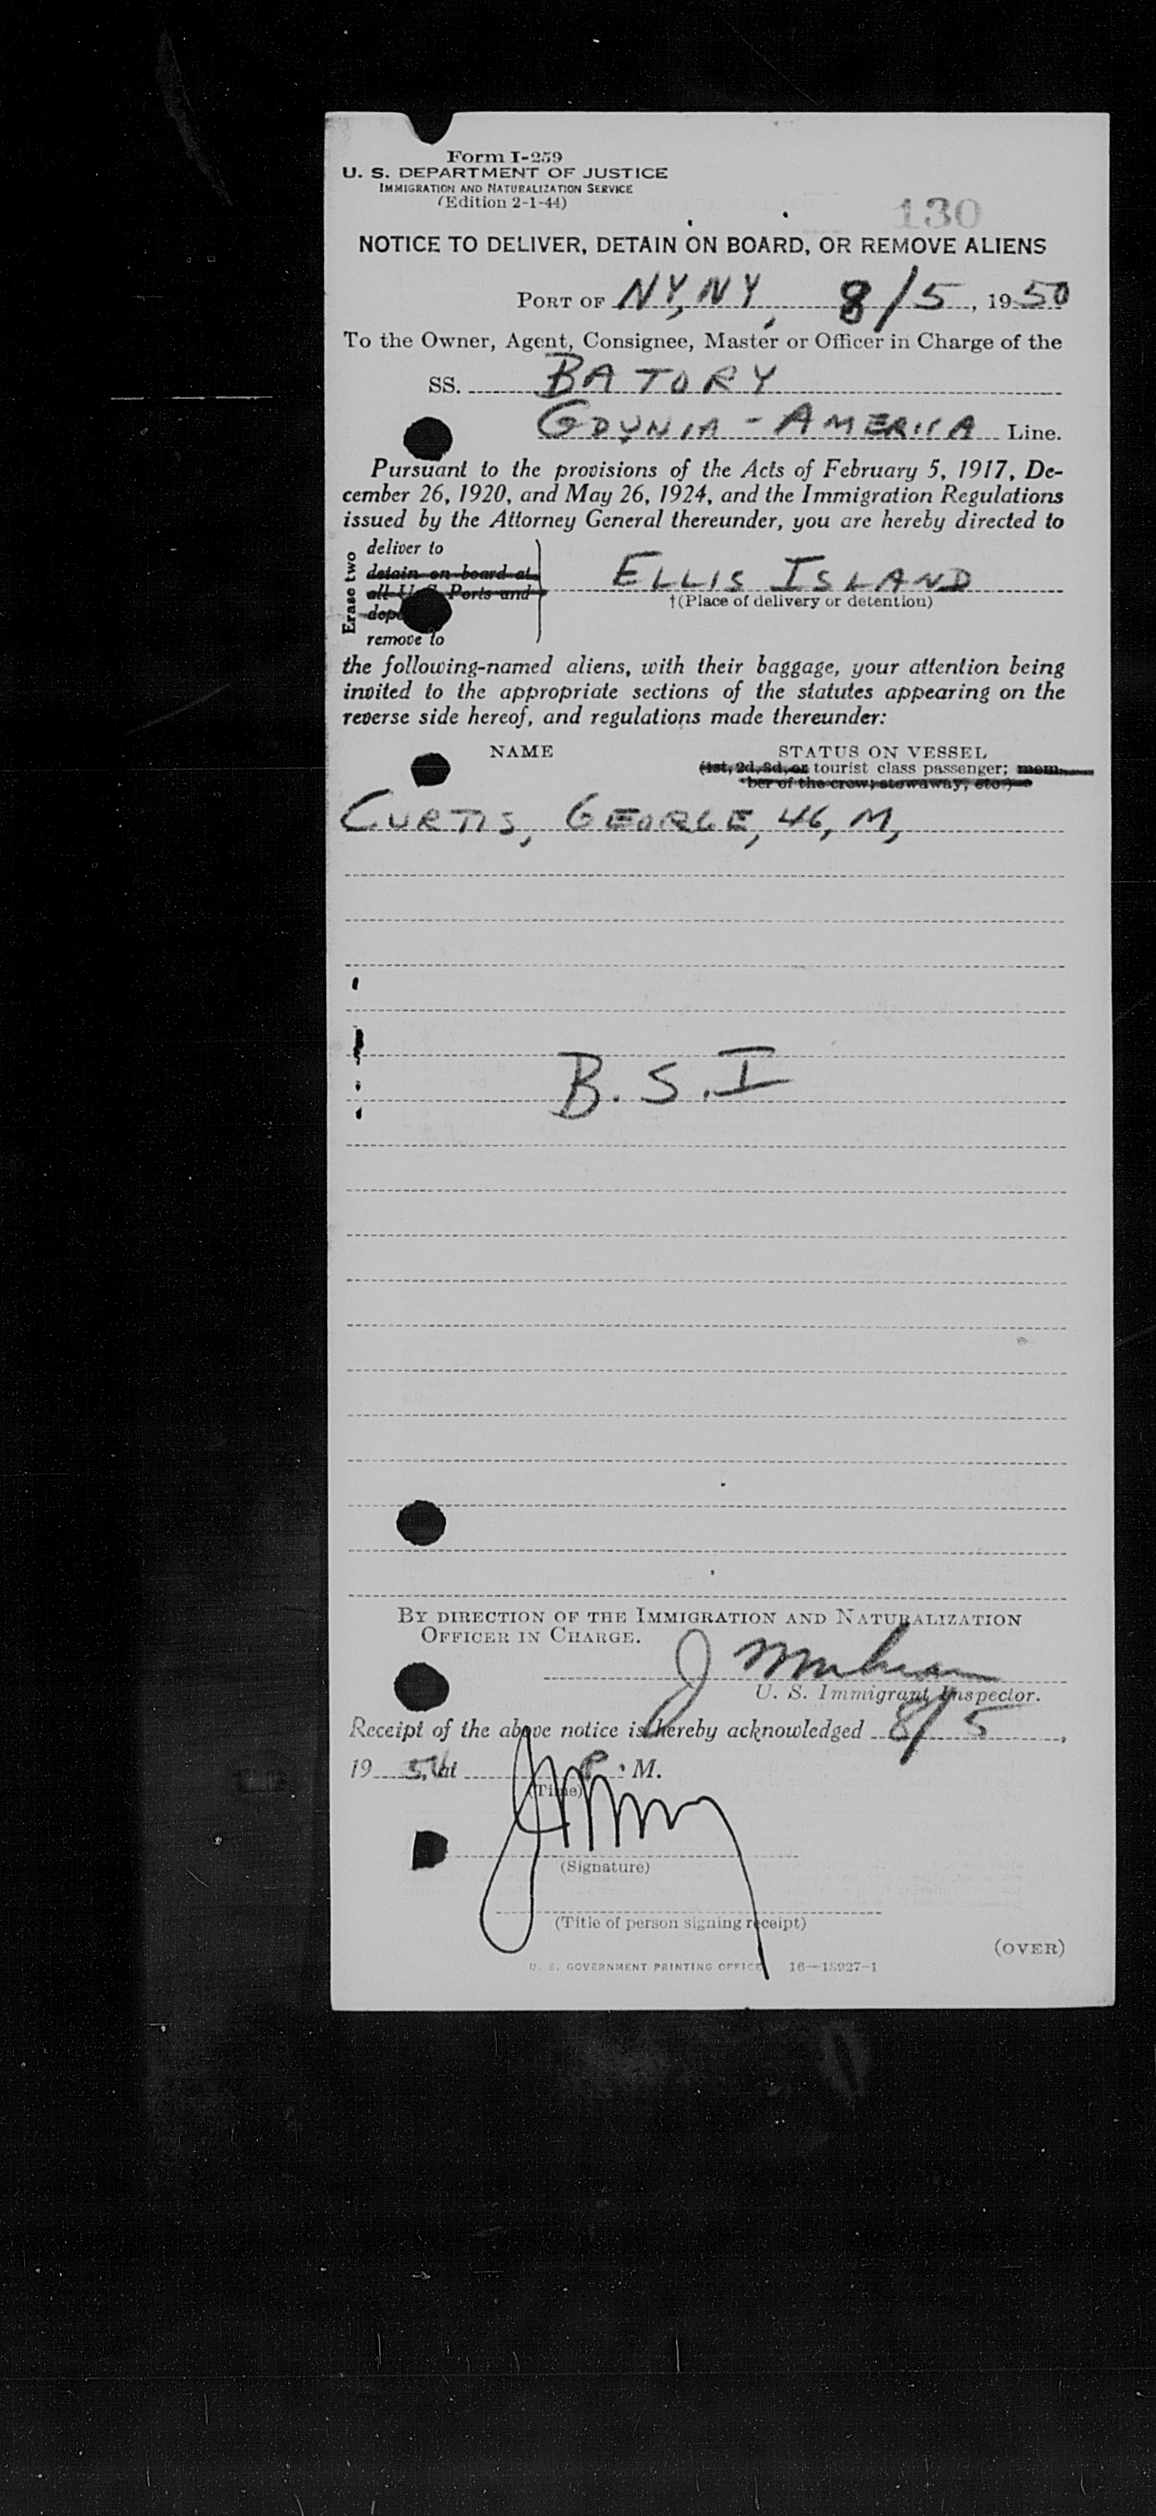 Form I-259
U. S. DEPARTMENT OF JUSTICE
IMMIGRATION AND NATURALIZATION SERVICE
(Edition 2-1-44)
130
NOTICE TO DELIVER, DETAIN ON BOARD, OR REMOVE ALIENS
PORT OF NY, NY, 8/5, 1950
To the Owner, Agent, Consignee, Master or Officer in Charge of the
SS. BATORY
GDYNIA - AMERICA Line.
Pursuant to the provisions of the Acts of February 5, 1917, De-
cember 26, 1920, and May 26, 1924, and the Immigration Regulations
issued by the Attorney General thereunder, you are hereby directed to
Erase two
deliver to
detain on board at
all U. S. Ports and
remove to
ELLIS ISLAND
†(Place of delivery or detention)
the following-named aliens, with their baggage, your attention being
invited to the appropriate sections of the statutes appearing on the
reverse side hereof, and regulations made thereunder:
NAME
STATUS ON VESSEL
(1st, 2d, 3d, or tourist class passenger; mem-
ber of the crew; stowaway, etc.)
CURTIS, GEORGE, 46, M,
B.S.I
BY DIRECTION OF THE IMMIGRATION AND NATURALIZATION
OFFICER IN CHARGE.
J
U. S. Immigrant Inspector.
Receipt of the above notice is hereby acknowledged 8/5,
19 at P. M.
(Time)
(Signature)
(Title of person signing receipt)
(OVER)
U. S. GOVERNMENT PRINTING OFFICE 16—18927-1